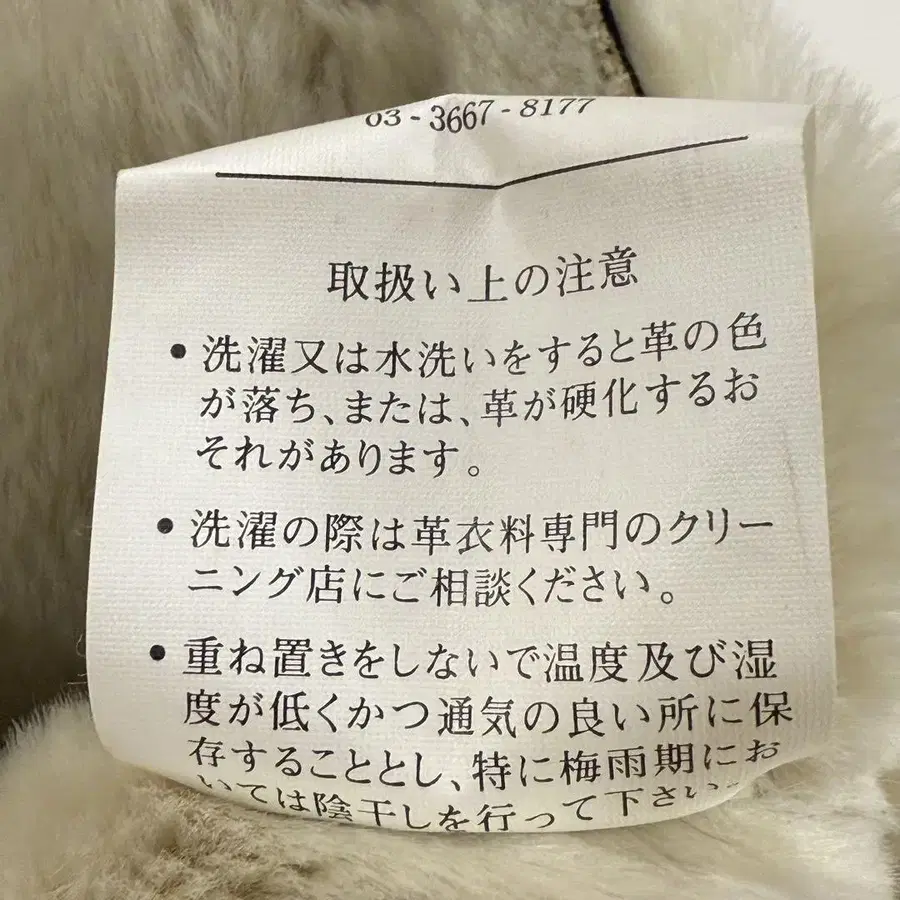 03-3667-8177
取扱い上の注意
• 洗濯又は水洗いをすると革の色
が落ち、または、革が硬化するお
それがあります。
• 洗濯の際は革衣料専門のクリー
ニング店にご相談ください。
• 重ね置きをしないで温度及び湿
度が低くかつ通気の良い所に保
存することとし、特に梅雨期にお
いては陰干しを行って下さい